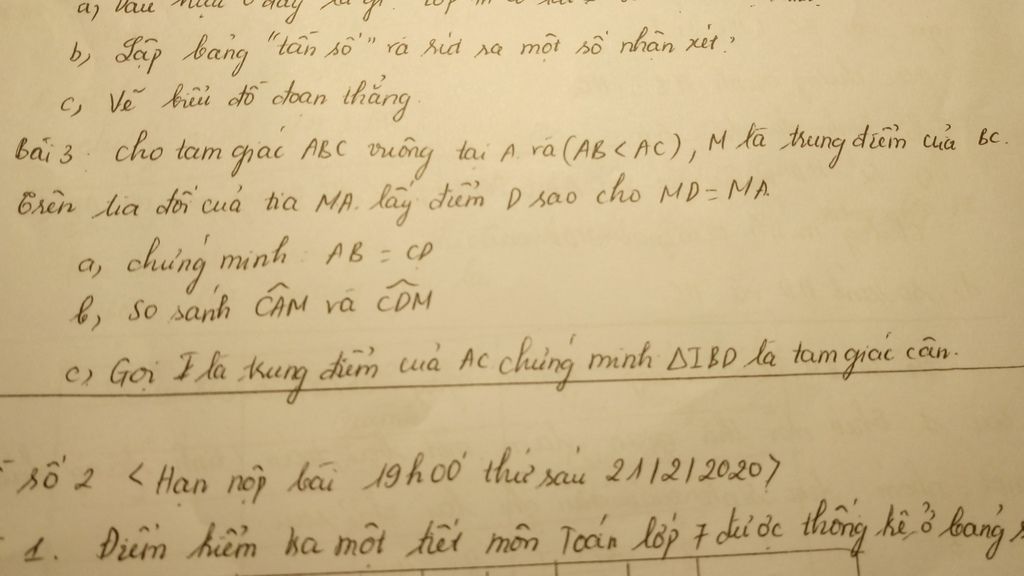 a, Dấu hiệu ở đây là gì?
b, Lập bảng "tần số" và rút ra một số nhận xét?
c, Vẽ biểu đồ đoạn thẳng.
Bài 3. cho tam giác ABC vuông tại A và (AB < AC), M là trung điểm của BC.
trên tia đối của tia MA lấy điểm D sao cho MD = MA
a, chứng minh: AB = CD
b, so sánh \(\widehat{CAM}\) và \(\widehat{CDM}\)
c, Gọi I là trung điểm của AC chứng minh ΔIBD là tam giác cân.
số 2 < Hạn nộp bài 19h00 thứ sáu 21/2/2020>
1. Điểm kiểm tra một tiết môn Toán lớp 7 được thống kê ở bảng